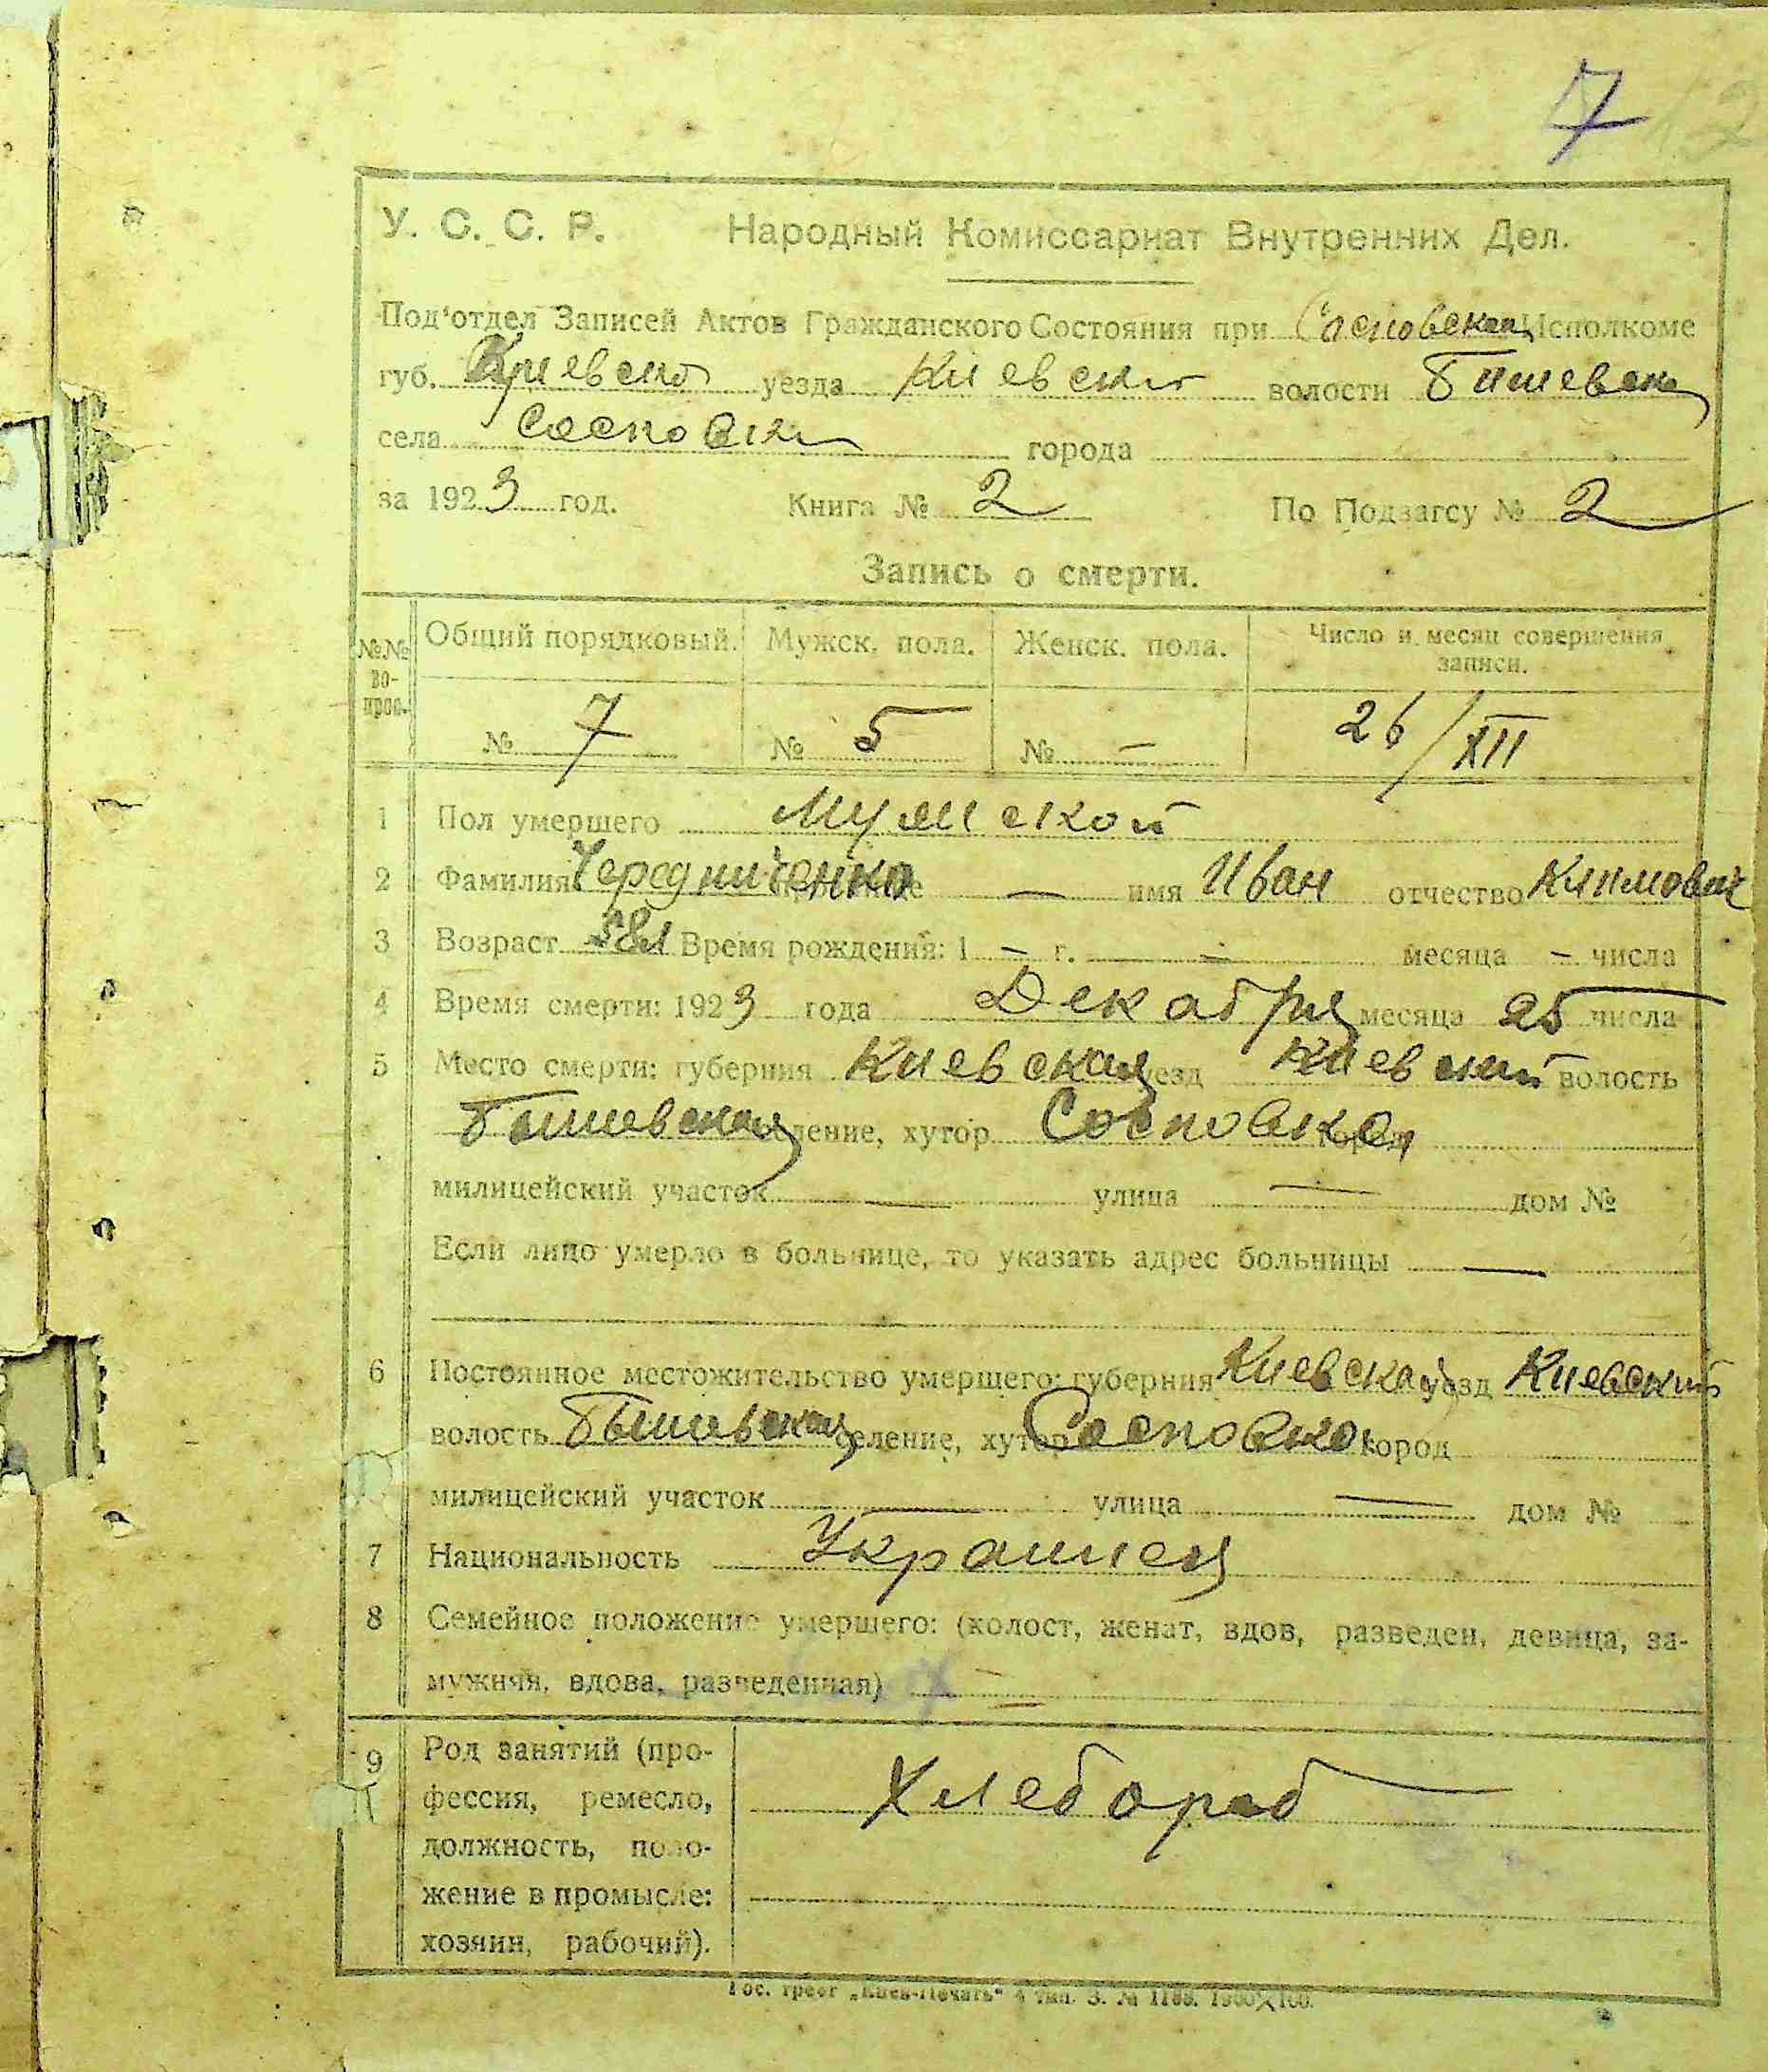 7
У. С. С. Р. Народный Комиссариат Внутренних Дел.
Под'отдел Записей Актов Гражданского Состояния при Сосновском Исполкоме
губ. Киевской уезда Киевского волости Бышевской
села Сосновки города
за 1923 год. Книга № 2 По Подзагсу № 2
Запись о смерти.
№№ вопрос. Общий порядковый. Мужск. пола. Женск. пола. Число и месяц совершения записи.
№ 7 № 5 № — 26/XII
1 Пол умершего Мужской
2 Фамилия Чередниченко — имя Иван отчество Климович
3 Возраст 58л Время рождения: 1 — г. — месяца — числа
4 Время смерти: 1923 года Декабря месяца 25 числа
5 Место смерти: губерния Киевская уезд Киевский волость
Бышевская селение, хутор Сосновка город
милицейский участок — улица — дом №
Если лицо умерло в больнице, то указать адрес больницы —
6 Постоянное местожительство умершего: губерния Киевская уезд Киевский
волость Бышевская селение, хутор Сосновка город
милицейский участок — улица — дом №
7 Национальность Украинец
8 Семейное положение умершего: (холост, женат, вдов, разведен, девица, за-
мужняя, вдова, разведенная) —
9 Род занятий (про-
фессия, ремесло, Хлебороб
должность, поло-
жение в промысле:
хозяин, рабочий).
Гос. трест „Киев-Печать" 4 тип. З. № 1189. 1900×100.